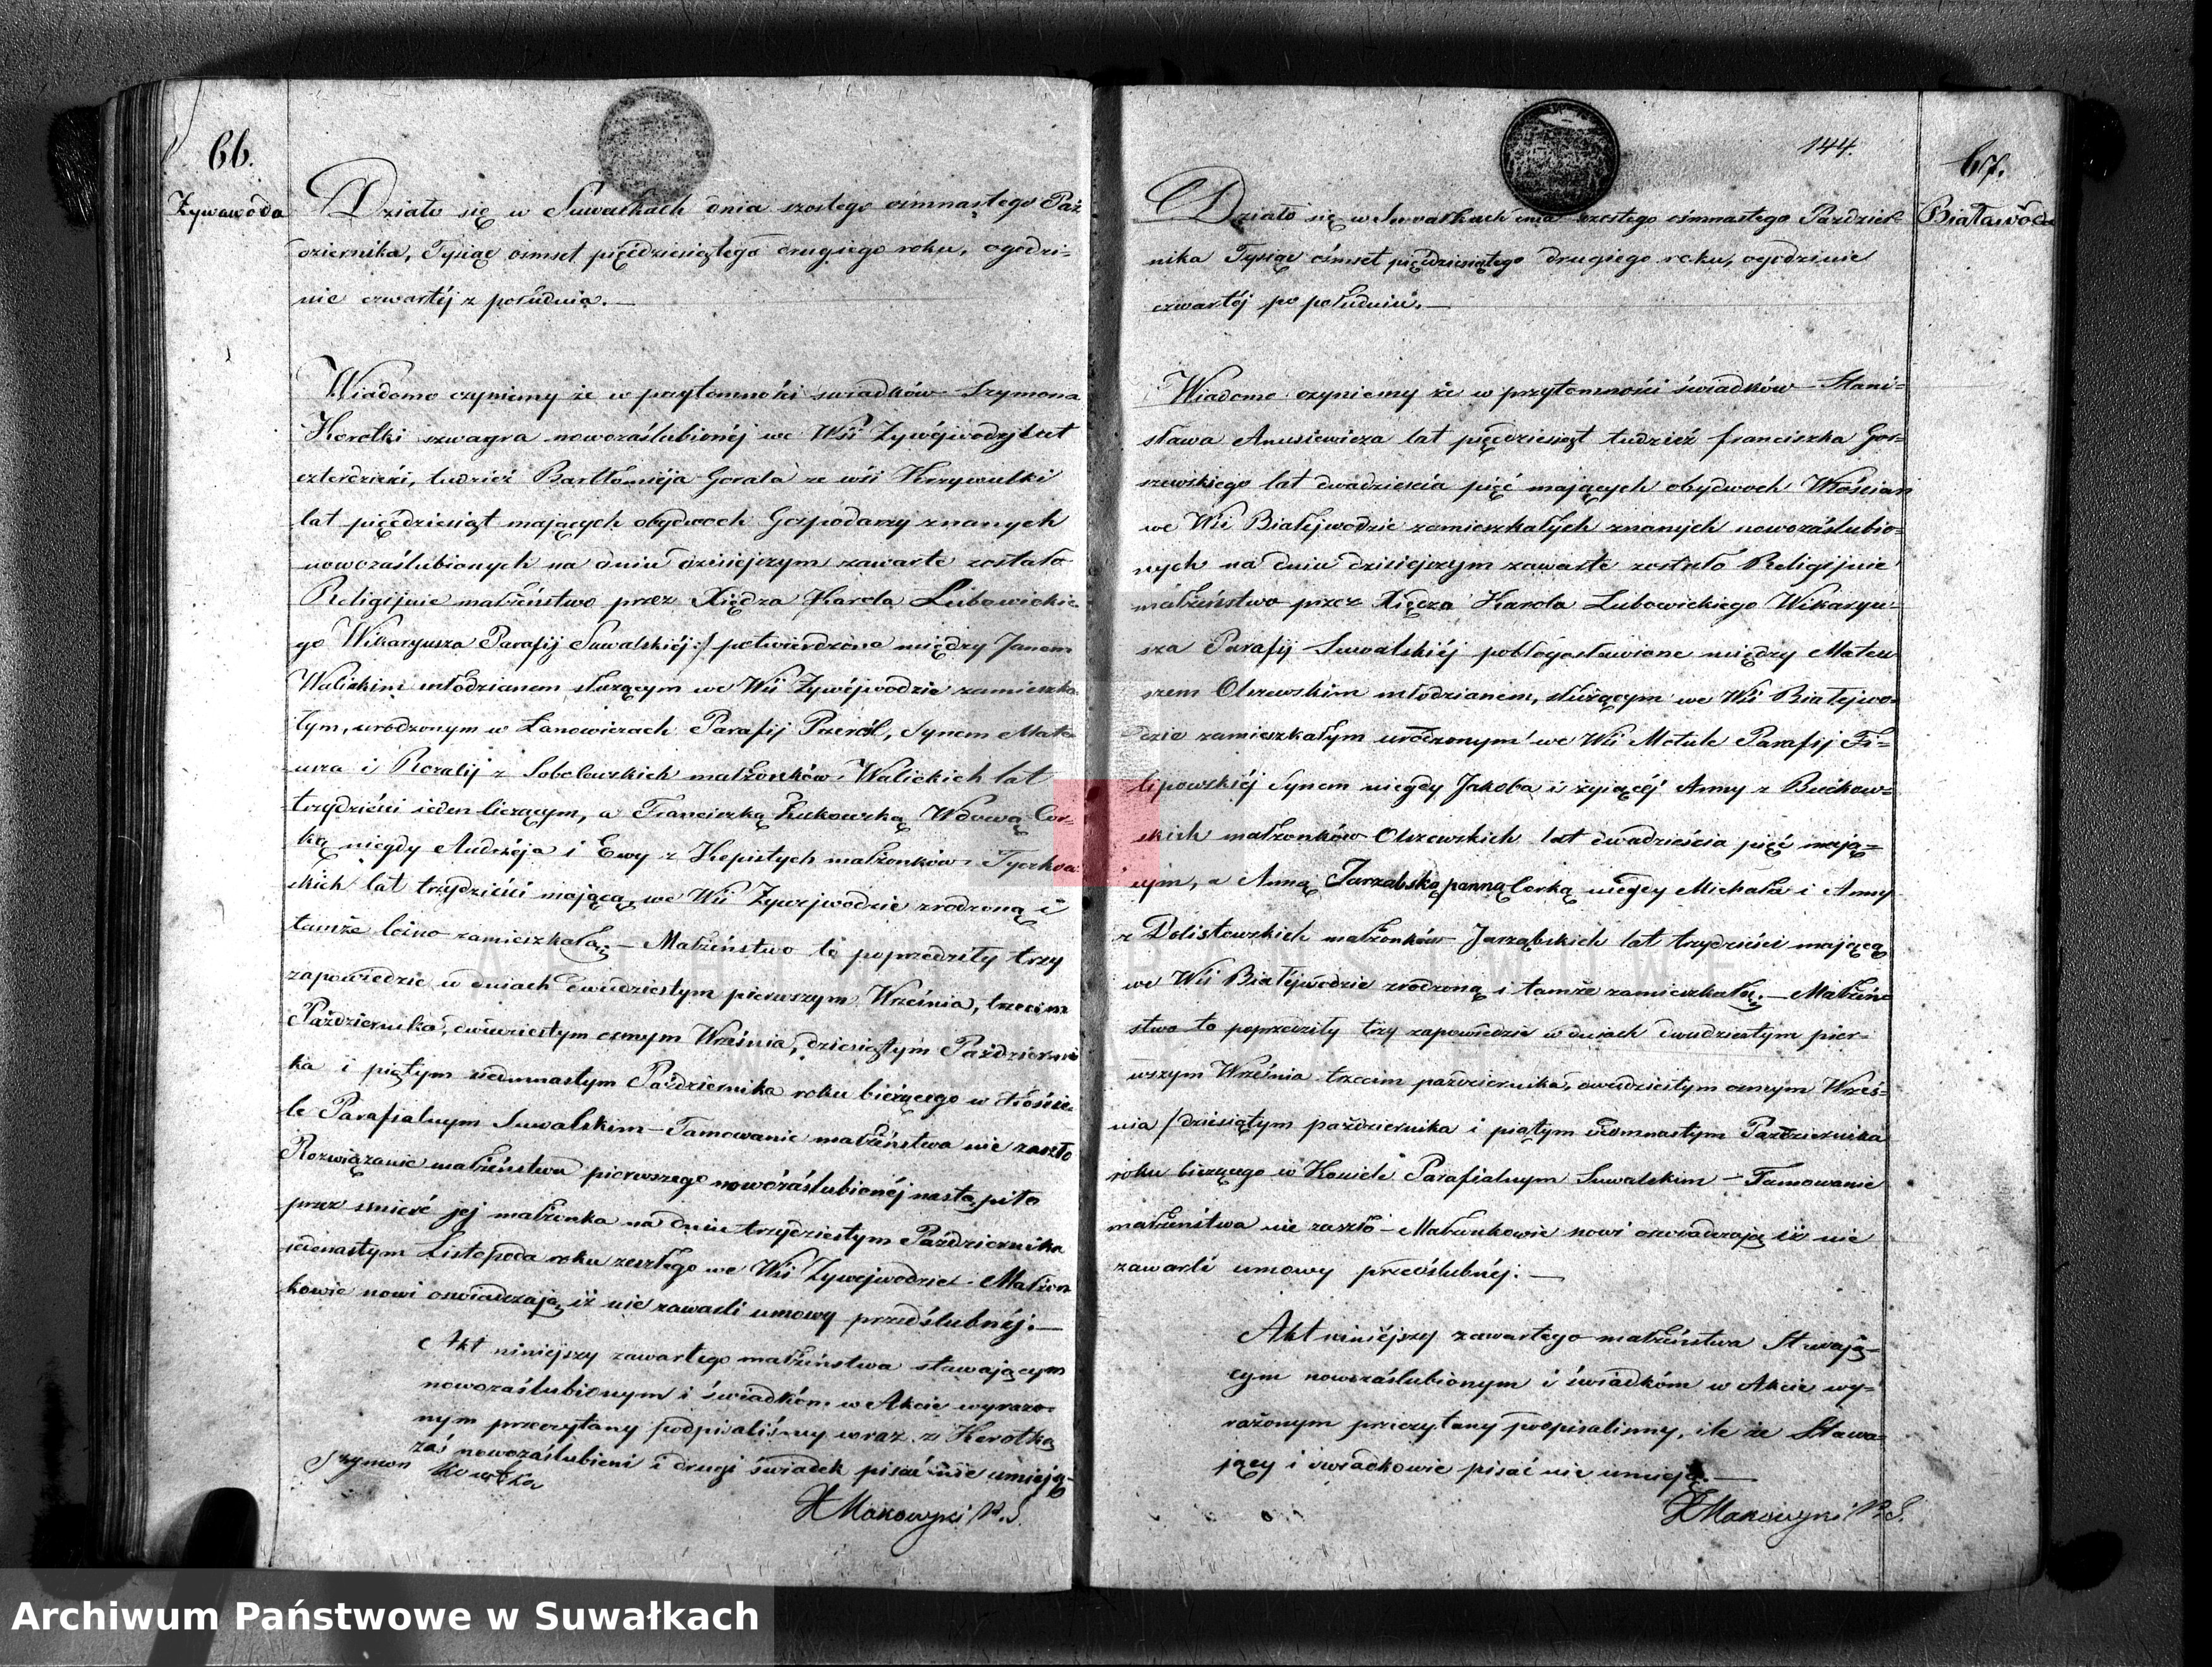 66.
Żywawoda
Działo się w Suwałkach dnia szostego ośmnastego Paź
dziernika, Tysiąc ośmset pięćdziesiątego drugiego roku, o godzi-
nie czwartéj z południa.—
Wiadomo czynimy że w przytomności swiadków Szymona
Korotki szwagra nowozaślubionéj we Wsi Żywéjwodzie lat
czterdzieści, tudzież Bartłomieja Gorala ze wsi Krzywulki
lat pięćdziesiąt mających obydwoch Gospodarzy znanych
nowozaślubionych na dniu dzisiejszym zawarte zostało
Religijnie małżeństwo przez Xiędza Karola Lubowickie-
go Wikaryusza Parafij Suwalskiéj potwierdzone między Janem
Walickim młodzianem służącym we Wsi Żywéjwodzie zamieszka-
łym, urodzonym w Łanowiczach Parafij Przerośl, Synem Mate-
usza i Rozalij z Sobolewskich małżonków Walickich lat
trzydzieści ieden liczącym, a Franciszką Kukowską Wdową Cor-
ką niegdy Andrzéja i Ewy z Kopistych małżonków
skich lat trzydzieści mającą, we Wsi Żywejwodzie zrodzoną i
tamże zamieszkałą.— Małżeństwo to poprzedziły trzy
zapowiedzie w dniach dwudziestym pierwszym Września, trzecim
Października, dwudziestym osmym Września, dziesiątym Październi
ka i piątym siedmnastym Października roku bieżącego w Koście-
le Parafialnym Suwalskim— Tamowanie małżeństwa nie zaszło
Rozwiązanie małżeństwa pierwszego nowozaślubionéj nastąpiło
przez smierć jej małżonka na dniu trzydziestym Października
jedenastym Listopada roku zeszłego we Wsi Żywejwodzie.— Małżon
kowie nowi oswiadczają iż nie zawarli umowy przedślubnéj.—
Akt niniejszy zawartego małżeństwa stawającym
nowozaślubionym i świadkóm w Akcie wyrażo-
nym przeczytany podpisaliśmy wraz z Korotką
zaś nowozaślubieni i drugi świadek pisać nie umieją-
Szymon Korotka
X Makowski P. S.
144.
67.
Białawoda
Działo się w Suwałkach dnia szostego ośmnastego Paździer-
nika Tysiąc ośmset pięćdziesiątego drugiego roku, o godzinie
czwartéj po południu.—
Wiadomo czyniemy że w przytomności świadków Stani-
sława Anusiewicza lat pięćdziesiąt tudzież Franciszka Gor-
szewskiego lat dwadzieścia pięć mających obydwoch Włościan
we Wsi Białejwodzie zamieszkałych znanych nowozaślubio-
nych na dniu dzisiejszym zawarte zostało Religijnie
małżeństwo przez Xiędza Karola Lubowickiego Wikaryu-
sza Parafij Suwalskiéj pobłogosławione między Mateu-
szem Olszewskim młodzianem, służącym we Wsi Białejwo-
dzie zamieszkałym urodzonym we Wsi Motule Parafij Fi-
lipowskiéj Synem niegdy Jakoba i żyiącéj Anny z Bućkow-
skich małżonków Olszewskich lat dwadzieścia pięć mają-
cym, a Anną Jarząbską panną Corką niegdy Michała i Anny
z Dolistowskich małżonków Jarząbskich lat trzydzieści mającą
we Wsi Białéjwodzie zrodzoną i tamże zamieszkałą.— Małżeń-
stwo to poprzedziły trzy zapowiedzie w dniach dwudziestym pier-
wszym Września trzecim października, dwudziestym osmym Wrześ-
nia dziesiątym października i piątym siedmnastym Października
roku bieżącego w Kosciele Parafialnym Suwalskim— Tamowanie
małżeństwa nie zaszło— Małżonkowie nowi oswiadczają iż nie
zawarli umowy przedślubnéj.—
Akt niniéjszy zawartego małżeństwa Stawają-
cym nowozaślubionym i świadkóm w Akcie wy-
rażonym przeczytany podpisalismy, ile że Stawa-
jący i swiadkowie pisać nie umieją.—
X Makowski P. S.
ARCHIWUM PAŃSTWOWE
W SUWAŁKACH
Archiwum Państwowe w Suwałkach